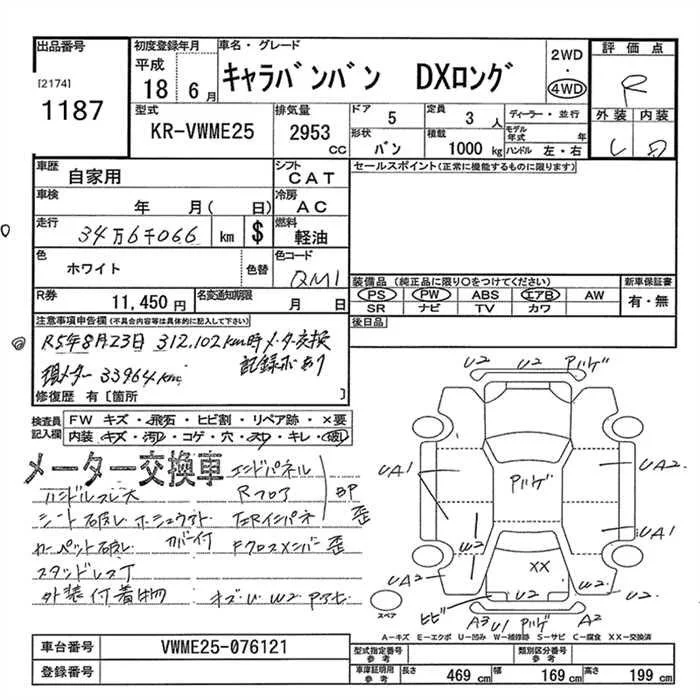 出品番号 初度登録年月 車名・グレード 評価点
[2174] 平成 2WD
1187 18 6月 キャラバンバン DXロング ・ 4WD R
型式 排気量 ドア 5 定員 3人 ディーラー・並行 外装 内装
KR-VWME25 2953 CC 形状 バン 積載 1000 kg モデル年式 年 ハンドル 左・右 D
車歴 自家用 シフト CAT セールスポイント(正常に機能するものに限ります)
車検 年 月( 日) 冷房 AC
走行 34万6千066 km $ 燃料 軽油
色 ホワイト 色替 色コード QM1
装備品 (純正品に限り○をつけてください) 新車保証書
R券 11,450円 名変通知期限 月 日 PS PW ABS エアB AW 有・無
SR ナビ TV カワ
注意事項申告欄(不具合内容等は具体的に記入して下さい) 後日品
R5年8月23日 312,102km時 メーター交換
記録ボあり
現メーター 33964km
修復歴 有 [箇所 ]
検査員記入欄 FW キズ・飛石・ヒビ割・リペア跡・×要
内装・キズ・汚レ・コゲ・穴・スレ・キレ・破レ
メーター交換車 エンドパネル
ハンドルスレ大 Rフロア
シート破レ
カーペット破レ カバー付 Fクロスメンバー 歪
スタッドレスT
外装付着物 キズ U W2
U2 U2 Pハゲ
UA1 Pハゲ UA2
UA1
W2 XX
UA2 W2
ヒビ U2
スペア A3 U1 Pハゲ A2
A―キズ E―エクボ U―凹み W―補修跡 S―サビ C―腐食 XX―交換済
車台番号 VWME25-076121 型式指定番号 参考 類別区分番号 参考
登録番号 車庫証明用 参考 長さ 469 cm 幅 169 cm 高さ 199 cm